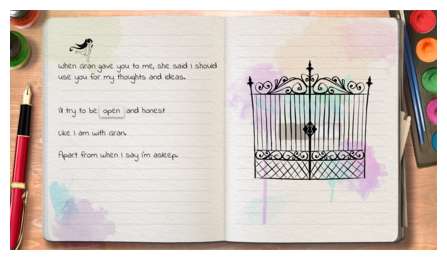 When Gran gave you to me, she said I should
use you for my thoughts and ideas.
I'll try to be open and honest
Like I am with Gran.
Apart from when I say I'm asleep.